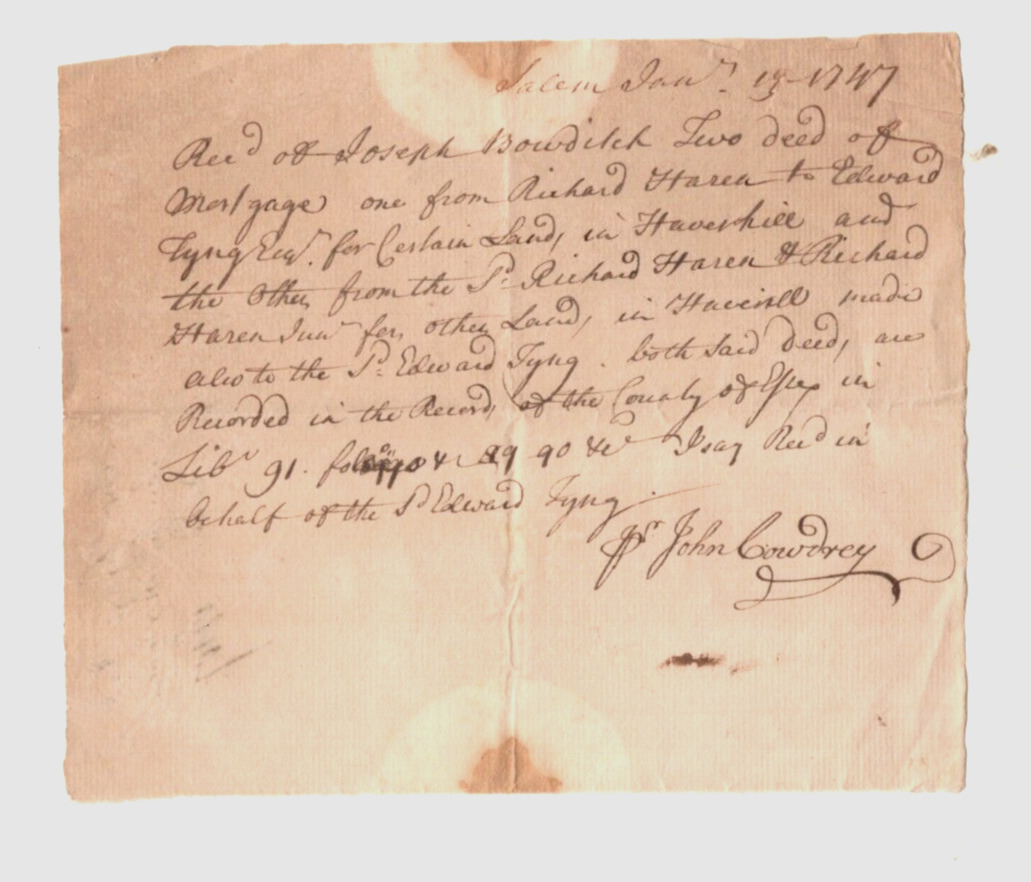 Salem Janʸ. 13 1747
Recᵈ of Joseph Bowditch Two deed of
Mortgage one from Richard Haren to Edward
Tyng Esqʳ. for Certain Land, in Haverhill and
the Other from the Sᵈ. Richard Haren & Richard
Haren Junʳ for other Land, in Haverill made
also to the Sᵈ. Edward Tyng. both Said deed, are
Recorded in the Record, of the County of Essex in
Libʳ 91. fol & 89 90 &cᵃ I say Recᵈ in
behalf of the Sᵈ Edward Tyng.
Pʳ John Cowdrey